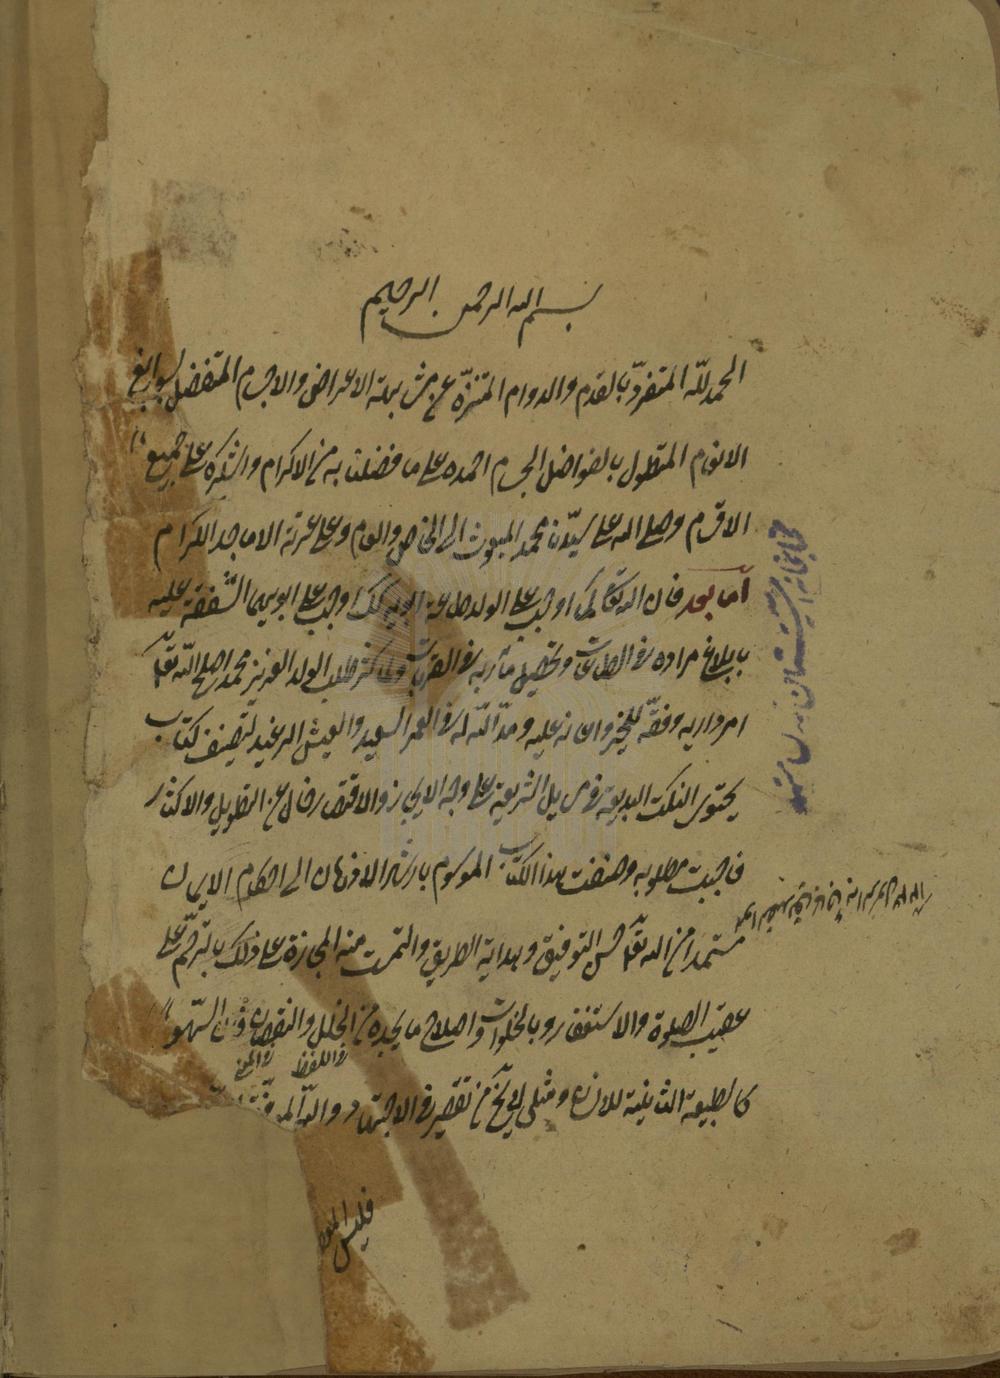 بسم الله الرحمن الرحيم
الحمد لله المتفرد بالقدم والدوام المتنزه عن مشابهة الاعراض والاجسام المتفضل بسوابغ
الانعام المتطول بالفواضل الجسام احمده على ما فضلنا به من الاكرام واشكره على جميع
الاقسام وصلى الله على سيدنا محمد المبعوث الى الخاص والعام وعلى عترته الاماجد الكرام
اما بعد فان الله تعالى كما اوجب على الولد طاعة ابويه كذلك اوجب على ابويهما الشفقة عليه
بابلاغ مراده فى الطاعات وتحصيل مآربه فى القربات ولما كثر طلب الولد العزيز محمد اصلح الله تعالى
امر داريه ووفقه للخير واعانه عليه ومد الله له فى العمر السعيد والعيش الرغيد لتصنيف كتاب
يحتوى النكت البديعة فى مسائل الشريعة على وجه الايجاز والاختصار خال عن التطويل والاكثار
فاجبت مطلوبه وصنفت هذا الكتاب الموسوم بارشاد الاذهان الى احكام الايمان
مستمدا من الله تعالى حسن التوفيق وهداية الطريق والتمست منه المجازاة على ذلك بالترحم على
عقيب الصلوة والاستغفار وبالخلوات واصلاح ما يجده من الخلل والنقصان فان السهو
فى اللفظ والمعنى
كالطبيعة الثانية للانسان ومثلى لا يخ من تقصير فى الاجتهاد والله الموفق
فليس المعصوم